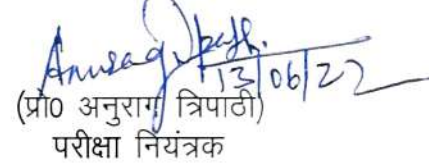 Anurag Tripathi
13/06/22
(प्रो0 अनुराग त्रिपाठी)
परीक्षा नियंत्रक